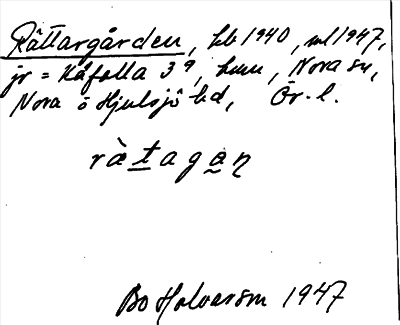 Rättargården, hb 1940, ml 1947,
jr = Kåfalla 3⁹, hmn, Nora sn,
Nora o Hjulsjö bd, Ör. l.
ràtagaŋ
Bo Halvarson 1947